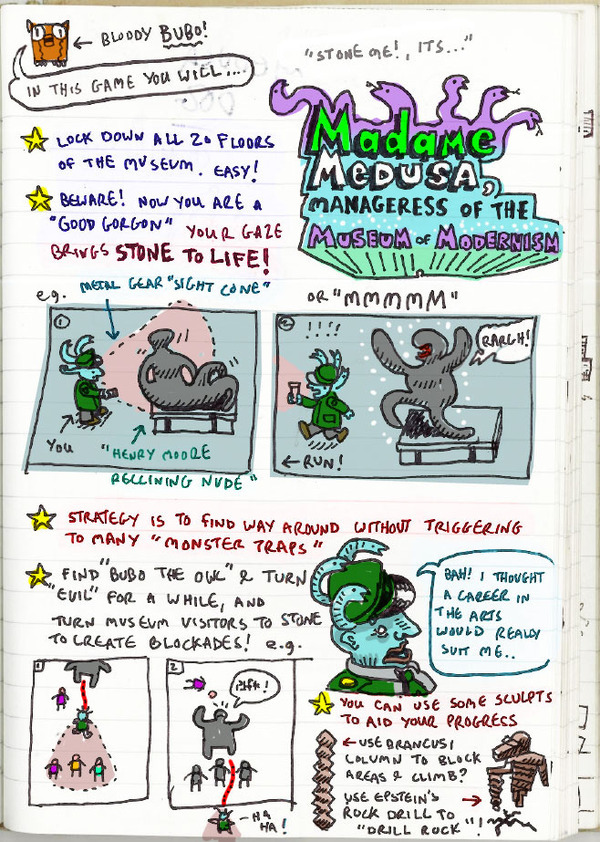 ← BLOODY BUBO!
IN THIS GAME YOU WILL....
"STONE ME!, ITS..."
Madame
MEDUSA,
MANAGERESS OF THE
MUSEUM OF MODERNISM
LOCK DOWN ALL 20 FLOORS
OF THE MUSEUM. EASY!
BEWARE! NOW YOU ARE A
"GOOD GORGON" YOUR GAZE
BRINGS STONE TO LIFE!
eg. METAL GEAR "SIGHT CONE"
OR "MMMMM"
1
YOU
"HENRY MOORE
RECLINING NUDE"
2
!!!!
RARGH!
← RUN!
STRATEGY IS TO FIND WAY AROUND WITHOUT TRIGGERING
TO MANY "MONSTER TRAPS"
FIND "BUBO THE OWL" & TURN
"EVIL" FOR A WHILE, AND
TURN MUSEUM VISITORS TO STONE
TO CREATE BLOCKADES! e.g.
BAH! I THOUGHT
A CAREER IN
THE ARTS
WOULD REALLY
SUIT ME..
1
2
HA
HA!
YOU CAN USE SOME SCULPTS
TO AID YOUR PROGRESS
← USE BRANCUSI
COLUMN TO BLOCK
AREAS & CLIMB?
USE EPSTEIN'S →
ROCK DRILL TO
"DRILL ROCK"!